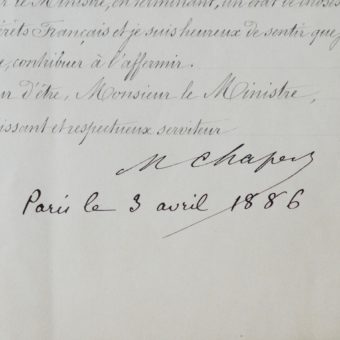 le Ministre, en terminant, un état de choses
érêts Français et je suis heureux de sentir que j
, contribuer à l'affermir.
ur d'être, Monsieur le Ministre,
issant et respectueux serviteur
M Chaper
Paris le 3 avril 1886